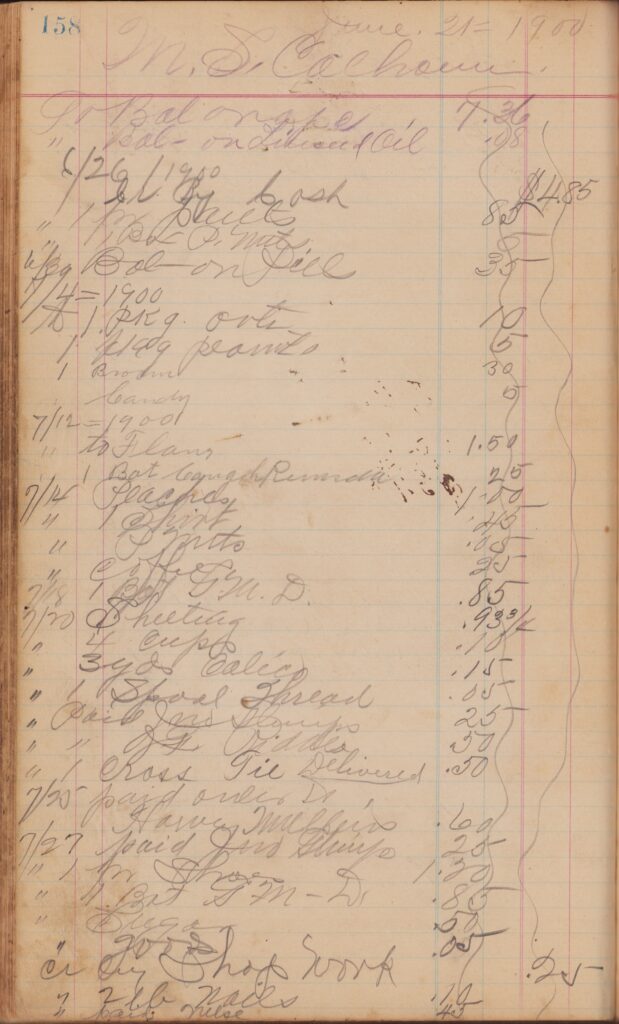 158 June. 21 = 1900
M. S. Calhoun.
To Bal on 7.36
" Bal- on Linseed Oil .08
6/26/1900
Cr. By Cash $4.85
" 1 pr 85
" 1 Box P. Nuts 5
6/29 Bal- on 35
7/4 = 1900
To 1 pkg. oats 10
1 pkg peanuts 5
1 Broom 30
Candy 5
7/12 = 1900
" to 1.50
1 Bot Cough 25
7/14 1.00
" 1 Shirt .45
" P. Nuts .05
" Coffee 25
7/18 1 Bot G. M. D. .85
7/20 Sheeting .93 3/4
" 4 cups .10
" 3 yds Calico .15
" 1 Spool Thread .05
" Paid Jno 25
" " .50
" 1 Cross Tie Delivered .50
7/25 paid order to
Harve .60
7/27 paid Jno 25
" 1 pr Shoes 1.30
" 1 Bot G M - D. .85
" 50
" .05
Cr By Shop Work .25
" 2 lb Nails .10
" paid 45